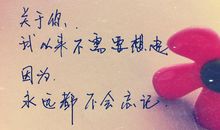 关于你.
我从来不需要想起
因为.
永远都不会忘记.